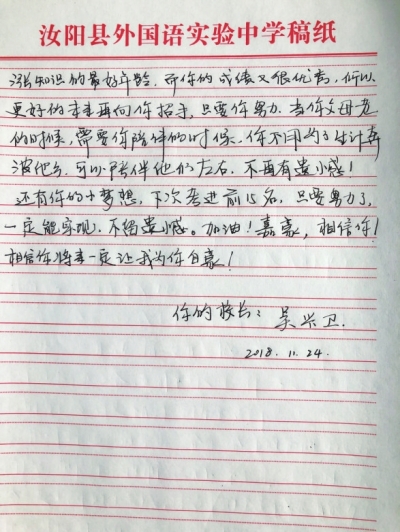 汝阳县外国语实验中学稿纸
涨知识的最好年龄。而你的成绩又很优秀，所以
更好的未来再向你招手，只要你努力。当你父母老
的时候，需要你陪伴的时候，你不用为了生计奔
波他乡，可以陪伴他们左右，不再有遗憾！
还有你的小梦想，下次考进前15名，只要努力了，
一定能实现，不留遗憾。加油！嘉豪，相信你！
相信你将来一定让我为你自豪！
你的校长：吴兴卫.
2018.11.24.